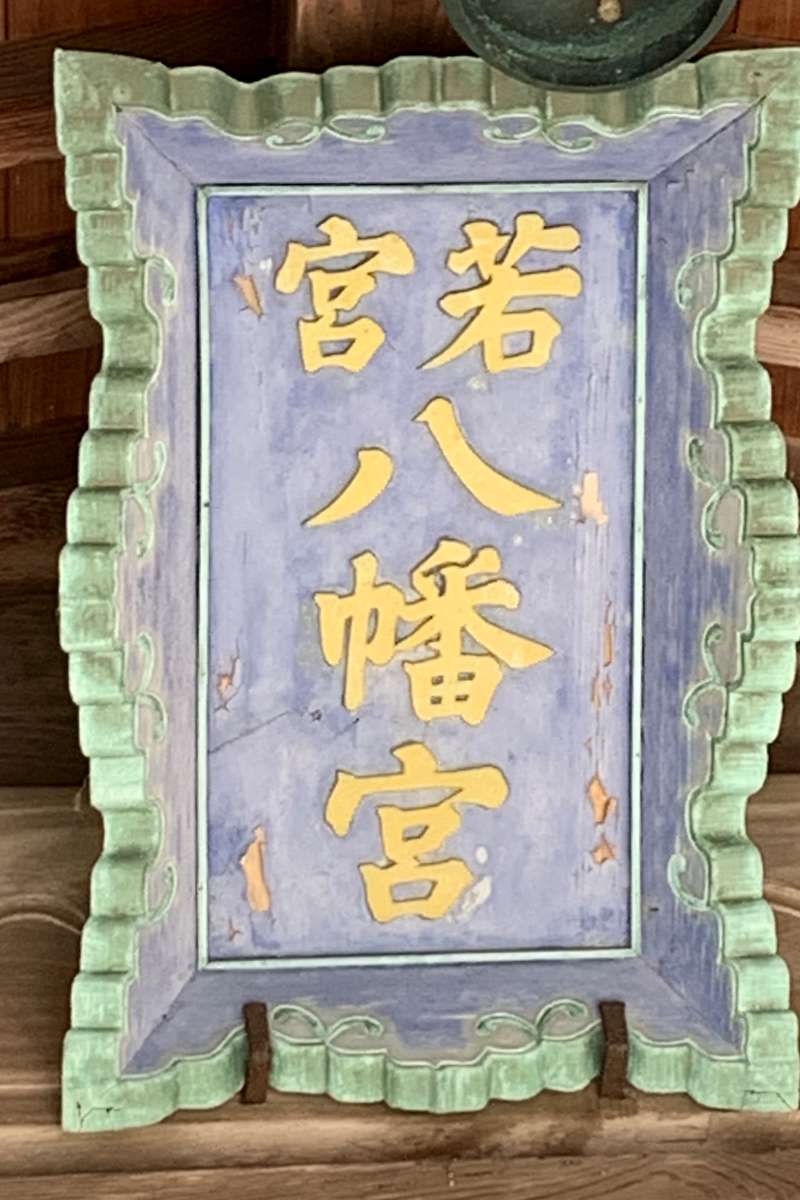 若宮
八幡宮